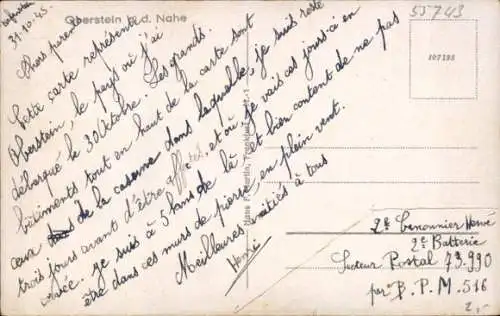 55743
Oberstein a. d. Nahe
107198
31-10-45
Chers parents
Cette carte représente
Oberstein, le pays où j'ai
débarqué le 30 Octobre. Les grands
bâtiments tout en haut de la carte sont
ceux de la caserne dans laquelle je suis resté
trois jours avant d'être affecté, et où je vais ces jours-ci en
corvée. Je suis à 5 kms de là et bien content de ne pas
être dans ces murs de pierre en plein vent.
Meilleures amitiés à tous
Henri
2e Canonnier Herve
2e Batterie
Secteur Postal 73.990
par B.P.M. 516
2,-